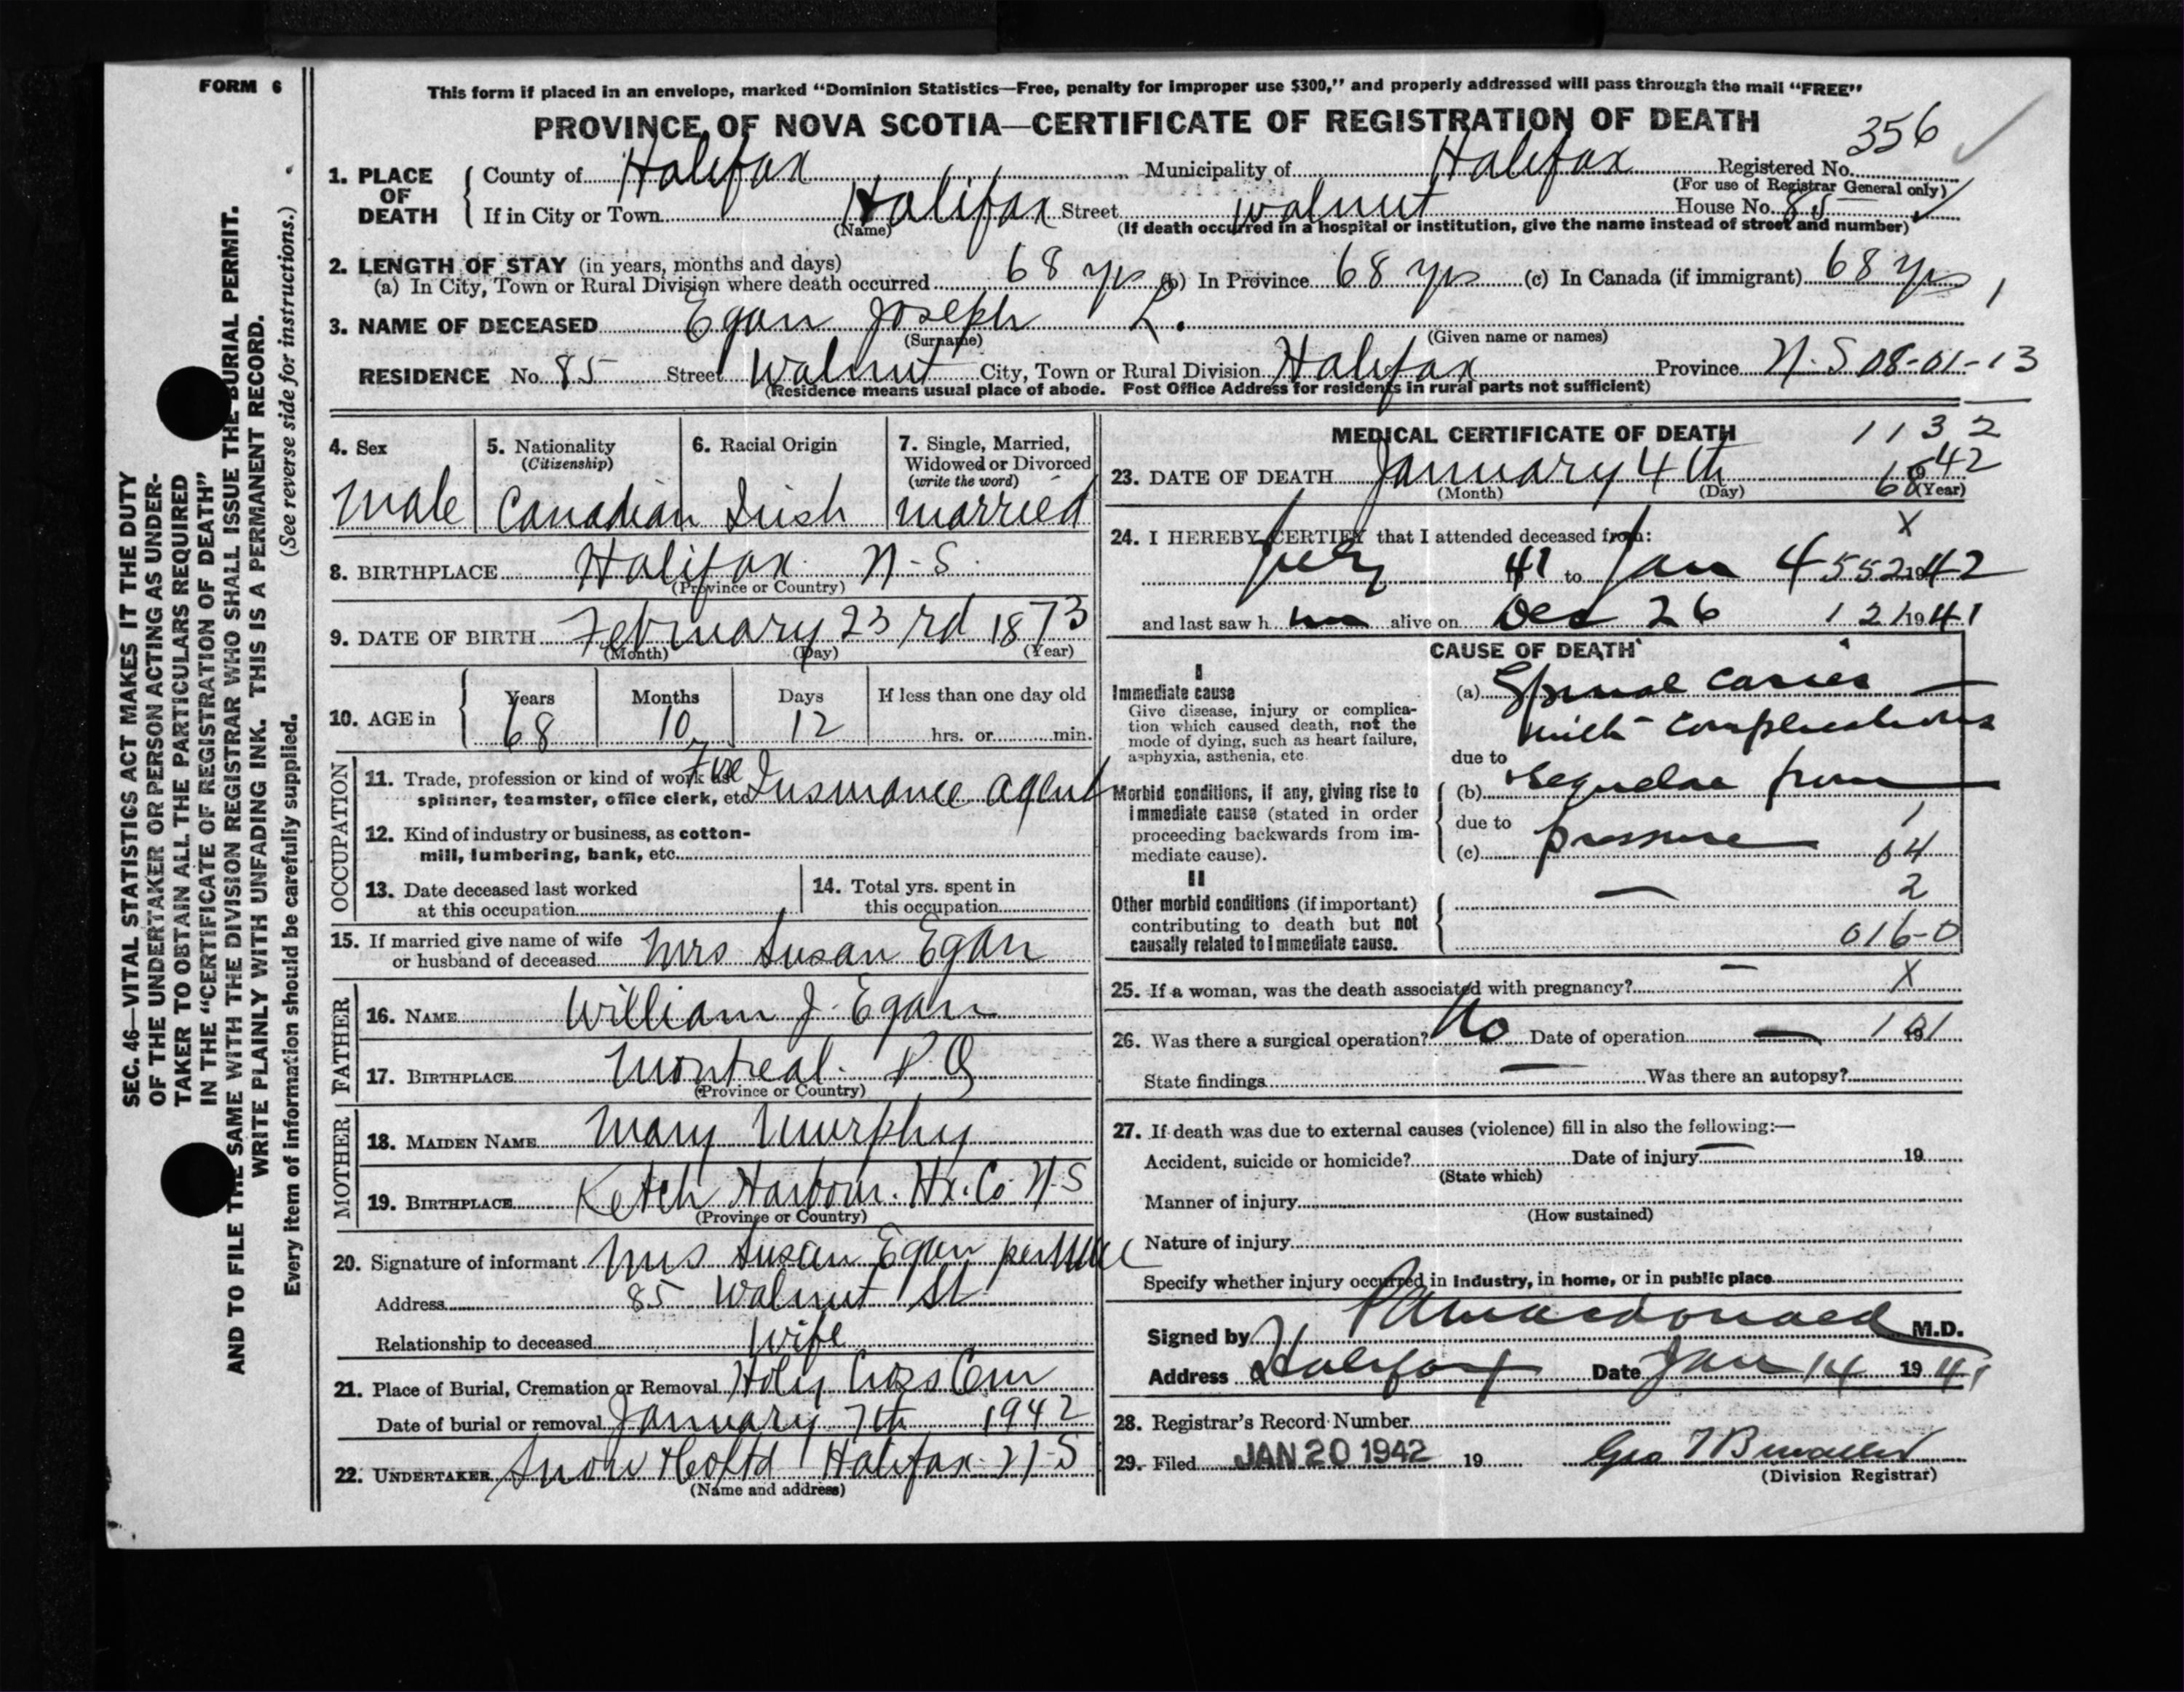 FORM 6
This form if placed in an envelope, marked “Dominion Statistics—Free, penalty for improper use $300,” and properly addressed will pass through the mail “FREE”
PROVINCE OF NOVA SCOTIA—CERTIFICATE OF REGISTRATION OF DEATH
356
1. PLACE OF DEATH
County of Halifax Municipality of Halifax Registered No.
(For use of Registrar General only)
If in City or Town Halifax Street Walnut House No. 85
(Name) (If death occurred in a hospital or institution, give the name instead of street and number)
2. LENGTH OF STAY (in years, months and days)
(a) In City, Town or Rural Division where death occurred 68 yrs (b) In Province 68 yrs (c) In Canada (if immigrant) 68 yrs
3. NAME OF DECEASED Egan Joseph L.
(Surname) (Given name or names)
RESIDENCE No. 85 Street Walnut City, Town or Rural Division Halifax Province N.S 08-01-13
(Residence means usual place of abode. Post Office Address for residents in rural parts not sufficient)
SEC. 46—VITAL STATISTICS ACT MAKES IT THE DUTY
OF THE UNDERTAKER OR PERSON ACTING AS UNDER-
TAKER TO OBTAIN ALL THE PARTICULARS REQUIRED
IN THE “CERTIFICATE OF REGISTRATION OF DEATH”
AND TO FILE THE SAME WITH THE DIVISION REGISTRAR WHO SHALL ISSUE THE BURIAL PERMIT.
WRITE PLAINLY WITH UNFADING INK. THIS IS A PERMANENT RECORD.
Every item of information should be carefully supplied. (See reverse side for instructions.)
4. Sex
Male
5. Nationality
(Citizenship)
Canadian
6. Racial Origin
Irish
7. Single, Married,
Widowed or Divorced
(write the word)
married
8. BIRTHPLACE Halifax N.S.
(Province or Country)
9. DATE OF BIRTH February 23rd 1873
(Month) (Day) (Year)
10. AGE in
Years Months Days If less than one day old
68 10 12 hrs. or min.
OCCUPATION
11. Trade, profession or kind of work as Fire
spinner, teamster, office clerk, etc. Insurance agent
12. Kind of industry or business, as cotton-
mill, lumbering, bank, etc.
13. Date deceased last worked
at this occupation
14. Total yrs. spent in
this occupation
15. If married give name of wife
or husband of deceased Mrs Susan Egan
FATHER
16. NAME William J. Egan
17. BIRTHPLACE Montreal. P.Q
(Province or Country)
MOTHER
18. MAIDEN NAME Mary Murphy
19. BIRTHPLACE Ketch Harbour. Hx. Co. N.S
(Province or Country)
20. Signature of informant Mrs Susan Egan
Address 85 Walnut St
Relationship to deceased Wife
21. Place of Burial, Cremation or Removal Holy Cross Cem
Date of burial or removal January 7th 1942
22. UNDERTAKER Snow & Co Ltd Halifax N.S
(Name and address)
MEDICAL CERTIFICATE OF DEATH 1132
23. DATE OF DEATH January 4th 1942
(Month) (Day) (Year)
68
X
24. I HEREBY CERTIFY that I attended deceased from:
July 41 to Jan 4 552 1942
and last saw h im alive on Dec 26 121 1941
CAUSE OF DEATH
I
Immediate cause
Give disease, injury or complica-
tion which caused death, not the
mode of dying, such as heart failure,
asphyxia, asthenia, etc
(a) Spinal caries
with complications
due to
Morbid conditions, if any, giving rise to
immediate cause (stated in order
proceeding backwards from im-
mediate cause).
(b) sequelae from
due to
1
(c) pressure 64
II
Other morbid conditions (if important)
contributing to death but not
causally related to immediate cause.
— 2
016-0
25. If a woman, was the death associated with pregnancy? — X
26. Was there a surgical operation? No Date of operation — 19
State findings — Was there an autopsy?
27. If death was due to external causes (violence) fill in also the following:—
Accident, suicide or homicide? Date of injury — 19
(State which)
Manner of injury
(How sustained)
Nature of injury
Specify whether injury occurred in industry, in home, or in public place
Signed by Macdonald M.D.
Address Halifax Date Jan 14 1941
28. Registrar’s Record Number
29. Filed JAN 20 1942 19
(Division Registrar)